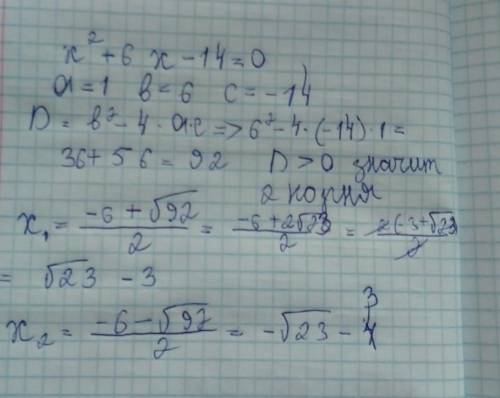 x² + 6 x - 14 = 0
a = 1 в = 6 c = -14
D = в² - 4 · a·c => 6² - 4 · (-14) · 1 =
36 + 56 = 92 D > 0 значит
2 корня
x₁ = (-6 + √92)/2 = (-6 + 2√23)/2 = 2(-3 + √23)/2
= √23 - 3
x₂ = (-6 - √92)/2 = -√23 - 3